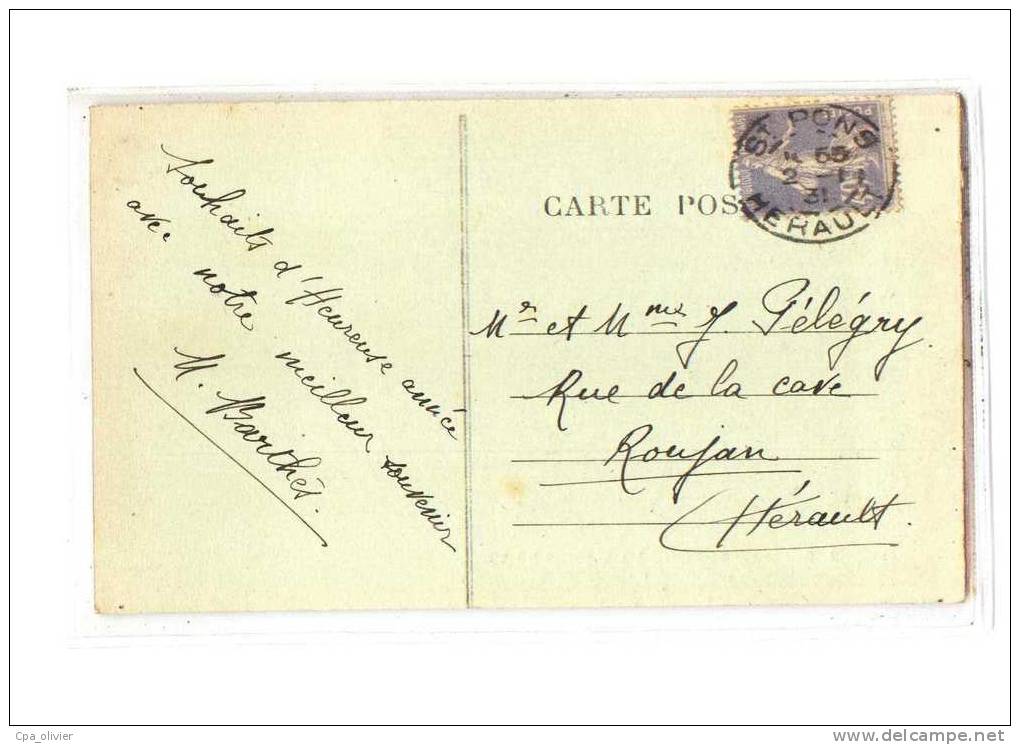 Souhaits d'Heureuse année
avec notre meilleur souvenir
M. Barthès.
CARTE POS
ST PONS
55
2
31
HERAULT
Mr et Mme J. Pélégry
Rue de la cave
Roujan
Hérault.
Cpa_olivier
www.delcampe.net